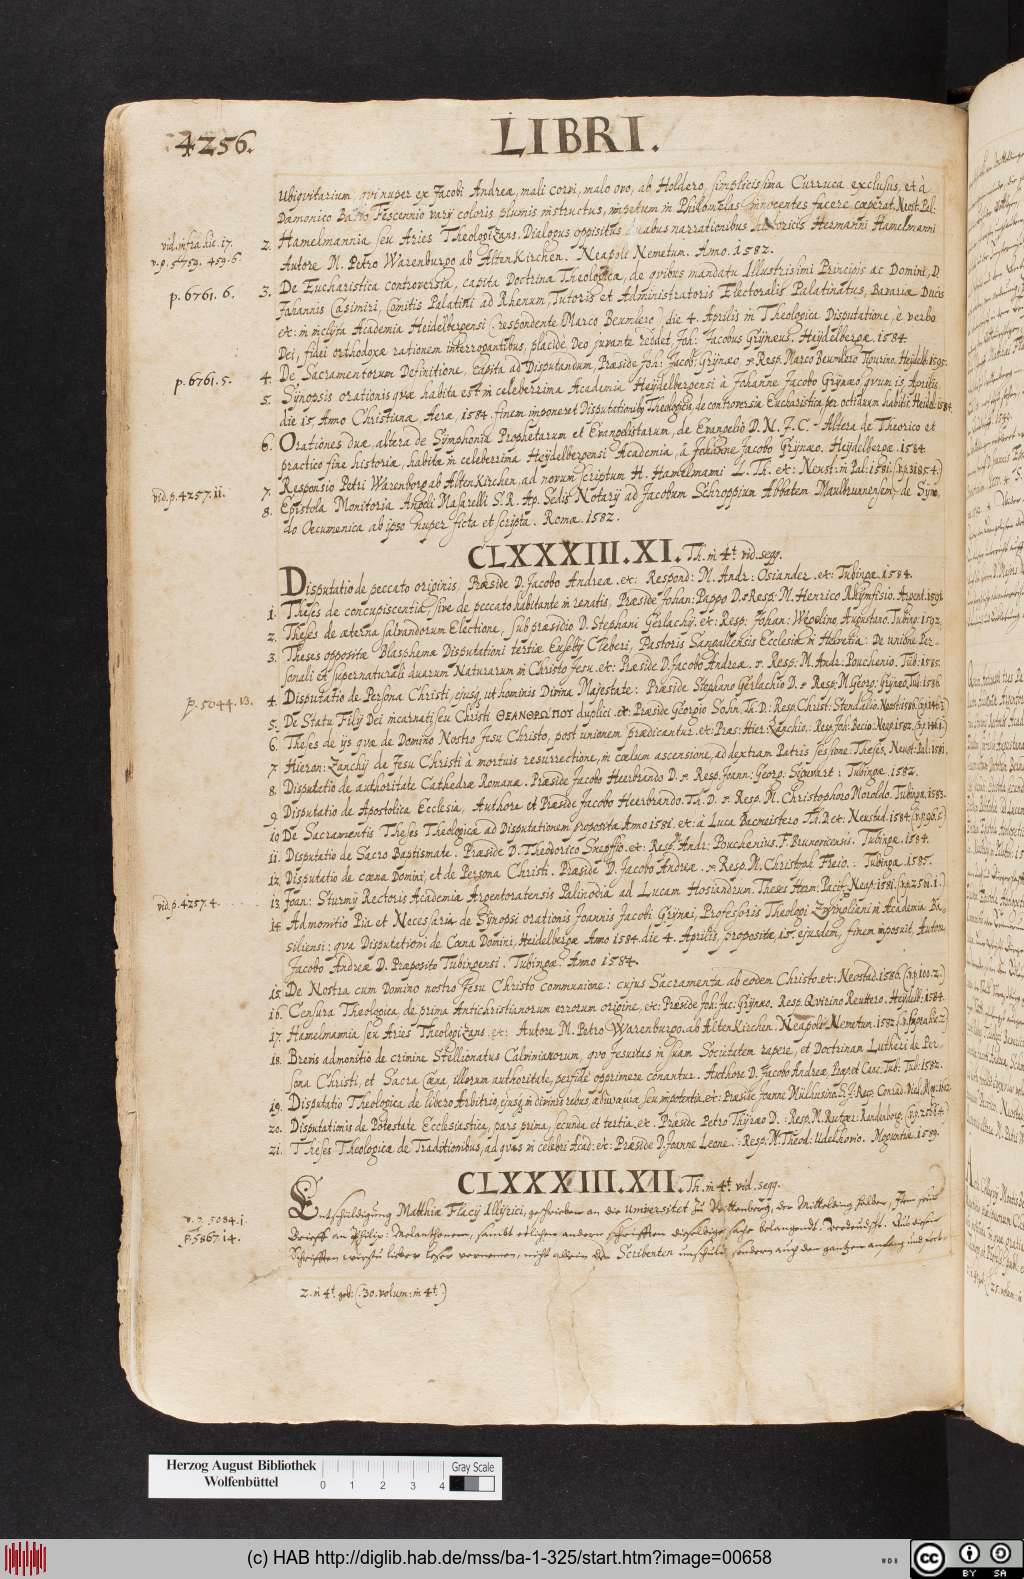 4256.
LIBRI.
Ubiqvitarium, qvi nuper ex Jacobi Andreæ, mali corvi, malo ovo, ab Holdero, simplicissima Curruca exclusus, et à
Dæmonico Fescennio varÿ coloris plumis instructus, impetum in Philomelas innocentes facere cœperat. Neost. Pal:
vid. infra hîc. 17.
v. p. 5759. 459. 6.
2. Hamelmannia seu Aries Theologizans. Dialogus oppositus duabus narrationibus historicis Hermanni Hamelmanni
Autore M. Petro Warenburgo ab AltenKirchen. Neapoli Nemetum. Anno. 1582.
p. 6761. 6.
3. De Eucharistica controversia, capita Doctrina Theologica, de qvibus mandatu Illustrissimi Principis ac Domini, D.
Johannis Casimiri, Comitis Palatini ad Rhenum, Tutoris et Administratoris Electoralis Palatinatus, Bavariæ Ducis
etc: in inclyta Academia Heidelbergensi (respondente Marco Beumlero) die 4. Aprilis in Theologica Disputatione, è verbo
Dei, fidei orthodoxæ rationem interrogantibus, placidè Deo juvante reddet, Joh: Jacobus Grÿnæus. Heÿdelbergæ. 1584.
p. 6761. 5.
4. De Sacramentorum Definitione, Capita ad Disputandum, Præside Joh: Jacob: Grÿnæo, et Resp. Marco Beumlero Tigurino. Heÿdelb:
5. Synopsis orationis qvæ habita est in celeberrima Academia Heÿdelbergensi à Johanne Jacobo Grÿnæo, qvum is Aprilis
die 15. Anno Christianæ Aeræ, 1584. finem imponeret Disputationibus Theologicis, de controversia Eucharistica, per octiduum habitis. Heidel. 1584.
6. Orationes duæ, altera de Symphonia Prophetarum et Evangelistarum, de Evangelio D. N. J. C. Altera de Theorico et
practico fine historiæ, habitæ in celeberrima Heydelbergensi Academia, à Johanne Jacobo Grÿnæo. Heÿdelbergæ. 1584
vid. p. 4257. 11.
7. Responsio Petri Warenburg ab AltenKirchen, ad novum scriptum H. Hamelmanni L. Th. etc: Neust: in Pal: 1581.
8. Epistola Monitoria Angeli Masarelli S. R. Ap. Sedis Notarÿ ad Jacobum Schroppium Abbatem Maulbrunnensem, de Syno-
do Oecumenica ab ipso nuper ficta et scripta. Romæ. 1582.
CLXXXIII. XI. Th. in 4t. vid. segg.
Disputatio de peccato originis, Præside D. Jacobo Andreæ. etc: Respond: M. Andr: Osiander. etc: Tubingæ. 1584.
1. Theses de concupiscentia, sive de peccato habitante in renatis, Præside Johan: Pappo D. et Resp: M. Henrico
2. Theses de æterna salvandorum Electione, sub præsidio D. Stephani Gerlachÿ. etc: Resp. Johan: Wegelino, Augustano. Tubing: 1592.
3. Theses oppositæ Blasphemæ Disputationi tertiæ Eusebÿ Cleberi, Pastoris Sangallensis Ecclesiæ in Helvetia: De unione Per-
sonali et supernaturali duarum Naturarum in Christo Jesu. etc: Præside D. Jacobo Andreæ. et Resp: M. Andr: Pouchenio. Tub: 1585.
p. 5044. 13.
4. Disputatio de Persona Christi, ejusq. ut hominis Divina Majestate: Præside Stephano Gerlachio D. et Resp: M. Georg: Grÿnæo, Tub: 1586
5. De Statu Filÿ Dei incarnati seu Christi ΘΕΑΝΘΡΩΠΟΥ duplici. etc: Præside Georgio Sohn, Th. D: Resp: Christ:
6. Theses de ijs qvæ de Domino Nostro Jesu Christo, post unionem prædicantur. etc: Præs: Hier: Zanchio.
7. Hieron: Zanchÿ de Jesu Christi à mortuis resurrectione, in cœlum ascensione, ad dextram Patris sessione: Theses. Neust: Pal: 1581
8. Disputatio de authoritate Cathedræ Romanæ. Præside Jacobo Heerbrando D. et Resp. Joann: Georg: Sigwart: Tubingæ. 1582.
9. Disputatio de Apostolica Ecclesia, Authore et Præside Jacobo Heerbrando. Th. D. et Resp. M. Christophoro Moroldo. Tubinga. 1583.
10. De Sacramentis Theses Theologicæ ad Disputationem propositæ Anno 1581. etc: à Luca Bacmeistero Th. D. etc. Neustad. 1584.
11. Disputatio de Sacro Baptismate. Præside D. Theodorico Snepffio. etc: Resp. M. Andr: Pouchenius. F. Brunonicensis. Tubingæ. 1584.
12. Disputatio de cœna Domini, et de Persona Christi. Præside D. Jacobo Andreæ. et Resp. M. Christoph Freio.: Tubingæ. 1585.
vid. p. 4257. 4.
13. Joan: Sturmÿ Rectoris Academiæ Argentoratensis Palinodia ad Lucam Hosiandrum. Theses Herm: Pacif. Neap: 1581.
14. Admonitio Pia et Necessaria de Sÿnopsi orationis Joannis Jacobi Grÿnæi, Professoris Theologi Zwingliani in Academia Ba-
siliensi: qvæ Disputationi de Cœna Domini, Heidelbergæ Anno 1584. die 4. Aprilis, propositæ, 15. ejusdem, finem imposuit, Autore
Jacobo Andreæ D. Præposito Tubingensi. Tubingæ. Anno 1584.
15. De Nostra cum Domino nostro Jesu Christo communione: cujus Sacramenta ab eodem Christo. etc: Neostad. 1586.
16. Censura Theologica, de prima Antichristianorum errorum origine, etc: Præside Joh: Jac: Grÿnæo. Resp. Qvirino Reuttero. Heydelb: 1584
17. Hamelmannia seu Aries Theologizans. etc: Autore M. Petro Warenburgo. ab AltenKirchen. Neapoli Nemetum. 1582.
18. Brevis admonitio de crimine Stellionatus Calvinianorum, qvo Jesuitas in suam Societatem rapere, et Doctrinam Lutheri de Per-
sona Christi, et Sacra Cœna, illorum authoritate, perfidè opprimere conantur. Authore D. Jacobo Andreæ, Præpos: et Canc. Tub: Tub: 1582.
19. Disputatio Theologica de libero Arbitrio, ejusq. in divinis rebus, adversaria seu impotentia, etc: Præside Joanne Mülhusino
20. Disputationis de Potestate Ecclesiastica, pars prima, secunda et tertia. etc. Præside Petro Thÿræo D.: Resp. M. Rutger:
21. Theses Theologicæ de Traditionibus, ad qvas in celebri Acad: etc: Præside D. Joanne Leone.: Resp: M. Theod: Udelhovio. Moguntiæ. 1584.
CLXXXIII. XII. Th. in 4t. vid. segg.
v. p. 5084. 1.
p. 5867. 14.
Entschuldigung Matthiæ Flacÿ Illÿrici, geschrieben an die Universitet zu Wittemberg, der Mittelding halben, Item sein
Brieff an Philip: Melanthonem, sambt etlichen andern schrifften dieselbige sache belangendt. Verdeudscht. Aus diesen
Schrifften wirstu lieber leser vernemen, nicht allein des Scribenten unschuld, sondern auch den gantzen anfang und
2. in 4t. geb: (30. volum: in 4t.)
Herzog August Bibliothek
Wolfenbüttel
0 1 2 3 4
Gray Scale
(c) HAB http://diglib.hab.de/mss/ba-1-325/start.htm?image=00658
WDB
cc BY SA